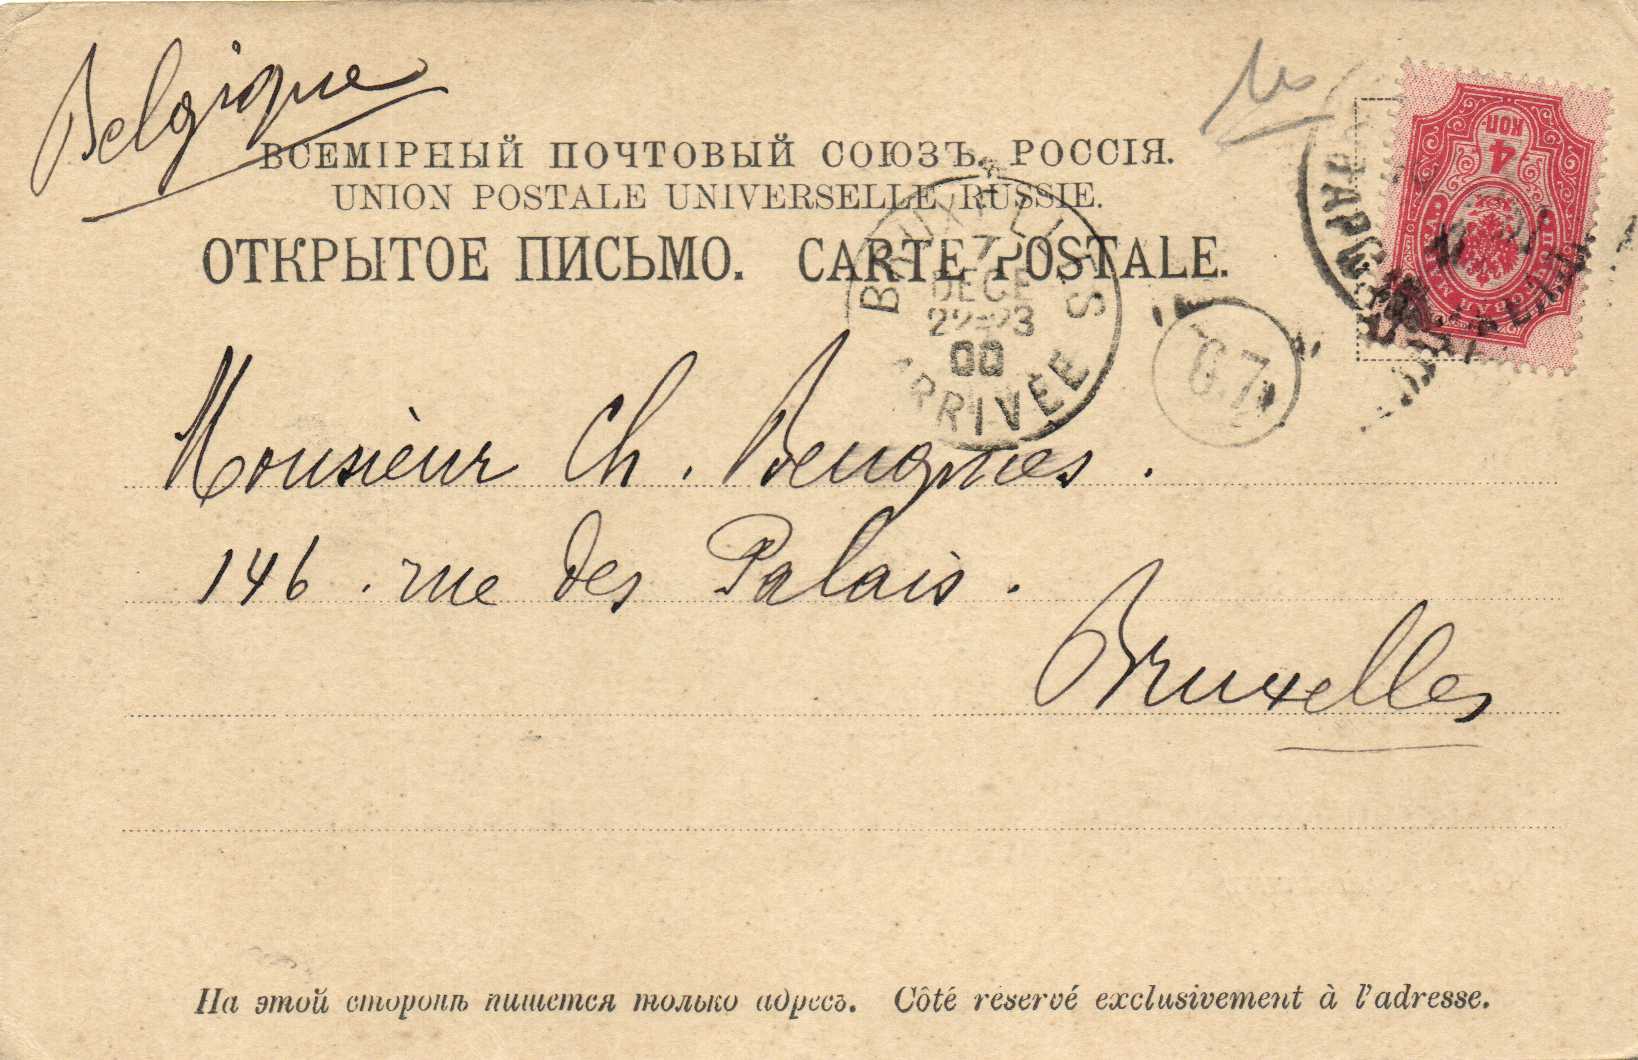 Belgique
ВСЕМІРНЫЙ ПОЧТОВЫЙ СОЮЗЪ. РОССІЯ.
UNION POSTALE UNIVERSELLE RUSSIE.
ОТКРЫТОЕ ПИСЬМО. CARTE POSTALE.
4
КОП
BRUXELLES
7
DECE
22-23
00
ARRIVÉE
Monsieur Ch. Beugnies.
146. rue des Palais.
Bruxelles
На этой сторонѣ пишется только адресъ. Côté réservé exclusivement à l'adresse.